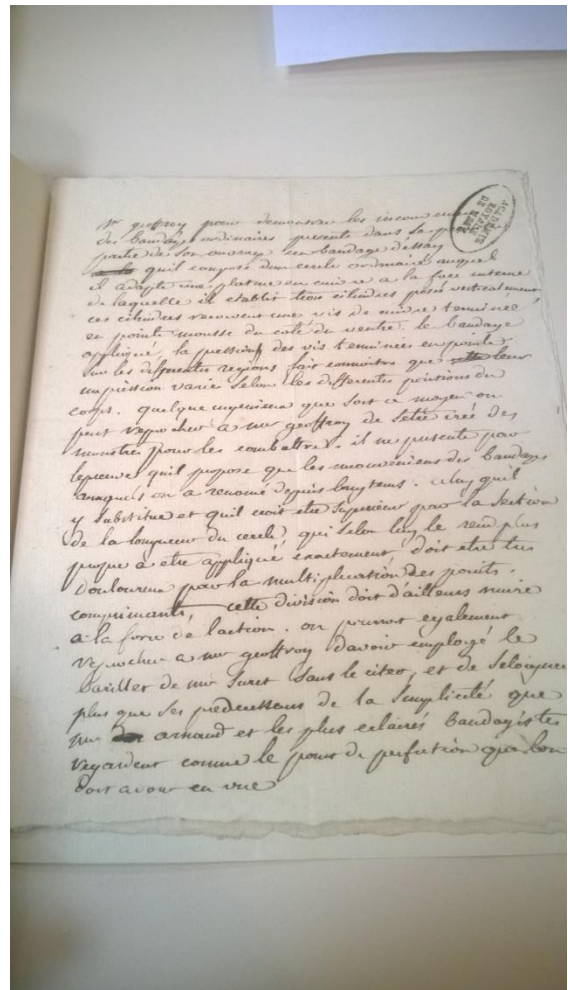 ACADEMIE ROYALE DE MED
Mr geoffroy pour demontrer les inconveniens
des bandages ordinaires presente dans la p
partie de son ouvrage un bandage dessay
quil compose dun cercle ordinaire auquel
il adapte une platine en cuivre a la face interne
de laquelle il etablit trois cilindres posés verticalement
ces cilindres recoivent une vis de cuivre terminée
en pointe mousse du coté du ventre. le bandage
appliqué, la pression des vis terminées en pointe
sur les differentes regions fait connoitre que leur
impression varie selon les differentes positions du
corps. quelque ingenieux que soit ce moyen on
peut reprocher a mr geoffroy de setre créé des
monstres pour les combattre. il ne presente par
lepreuve quil propose que les inconveniens des bandages
auxquels on a renoncé depuis longtems. celuy quil
y substitue et quil croit etre superieur par la section
de la longueur du cercle, qui selon luy le rend plus
propre a etre appliqué exactement, doit etre tres
douloureux par la multiplication des points
comprimants, cette division doit d'ailleurs nuire
a la force de laction. on pourroit egalement
reprocher a mr geoffroy davoir employé le
de mr Suret sans le citer, et de seloigner
plus que ses predecesseurs de la simplicité que
mr arnaud et les plus eclairés bandagistes
regardent comme le point de perfection que lon
doit avoir en vue